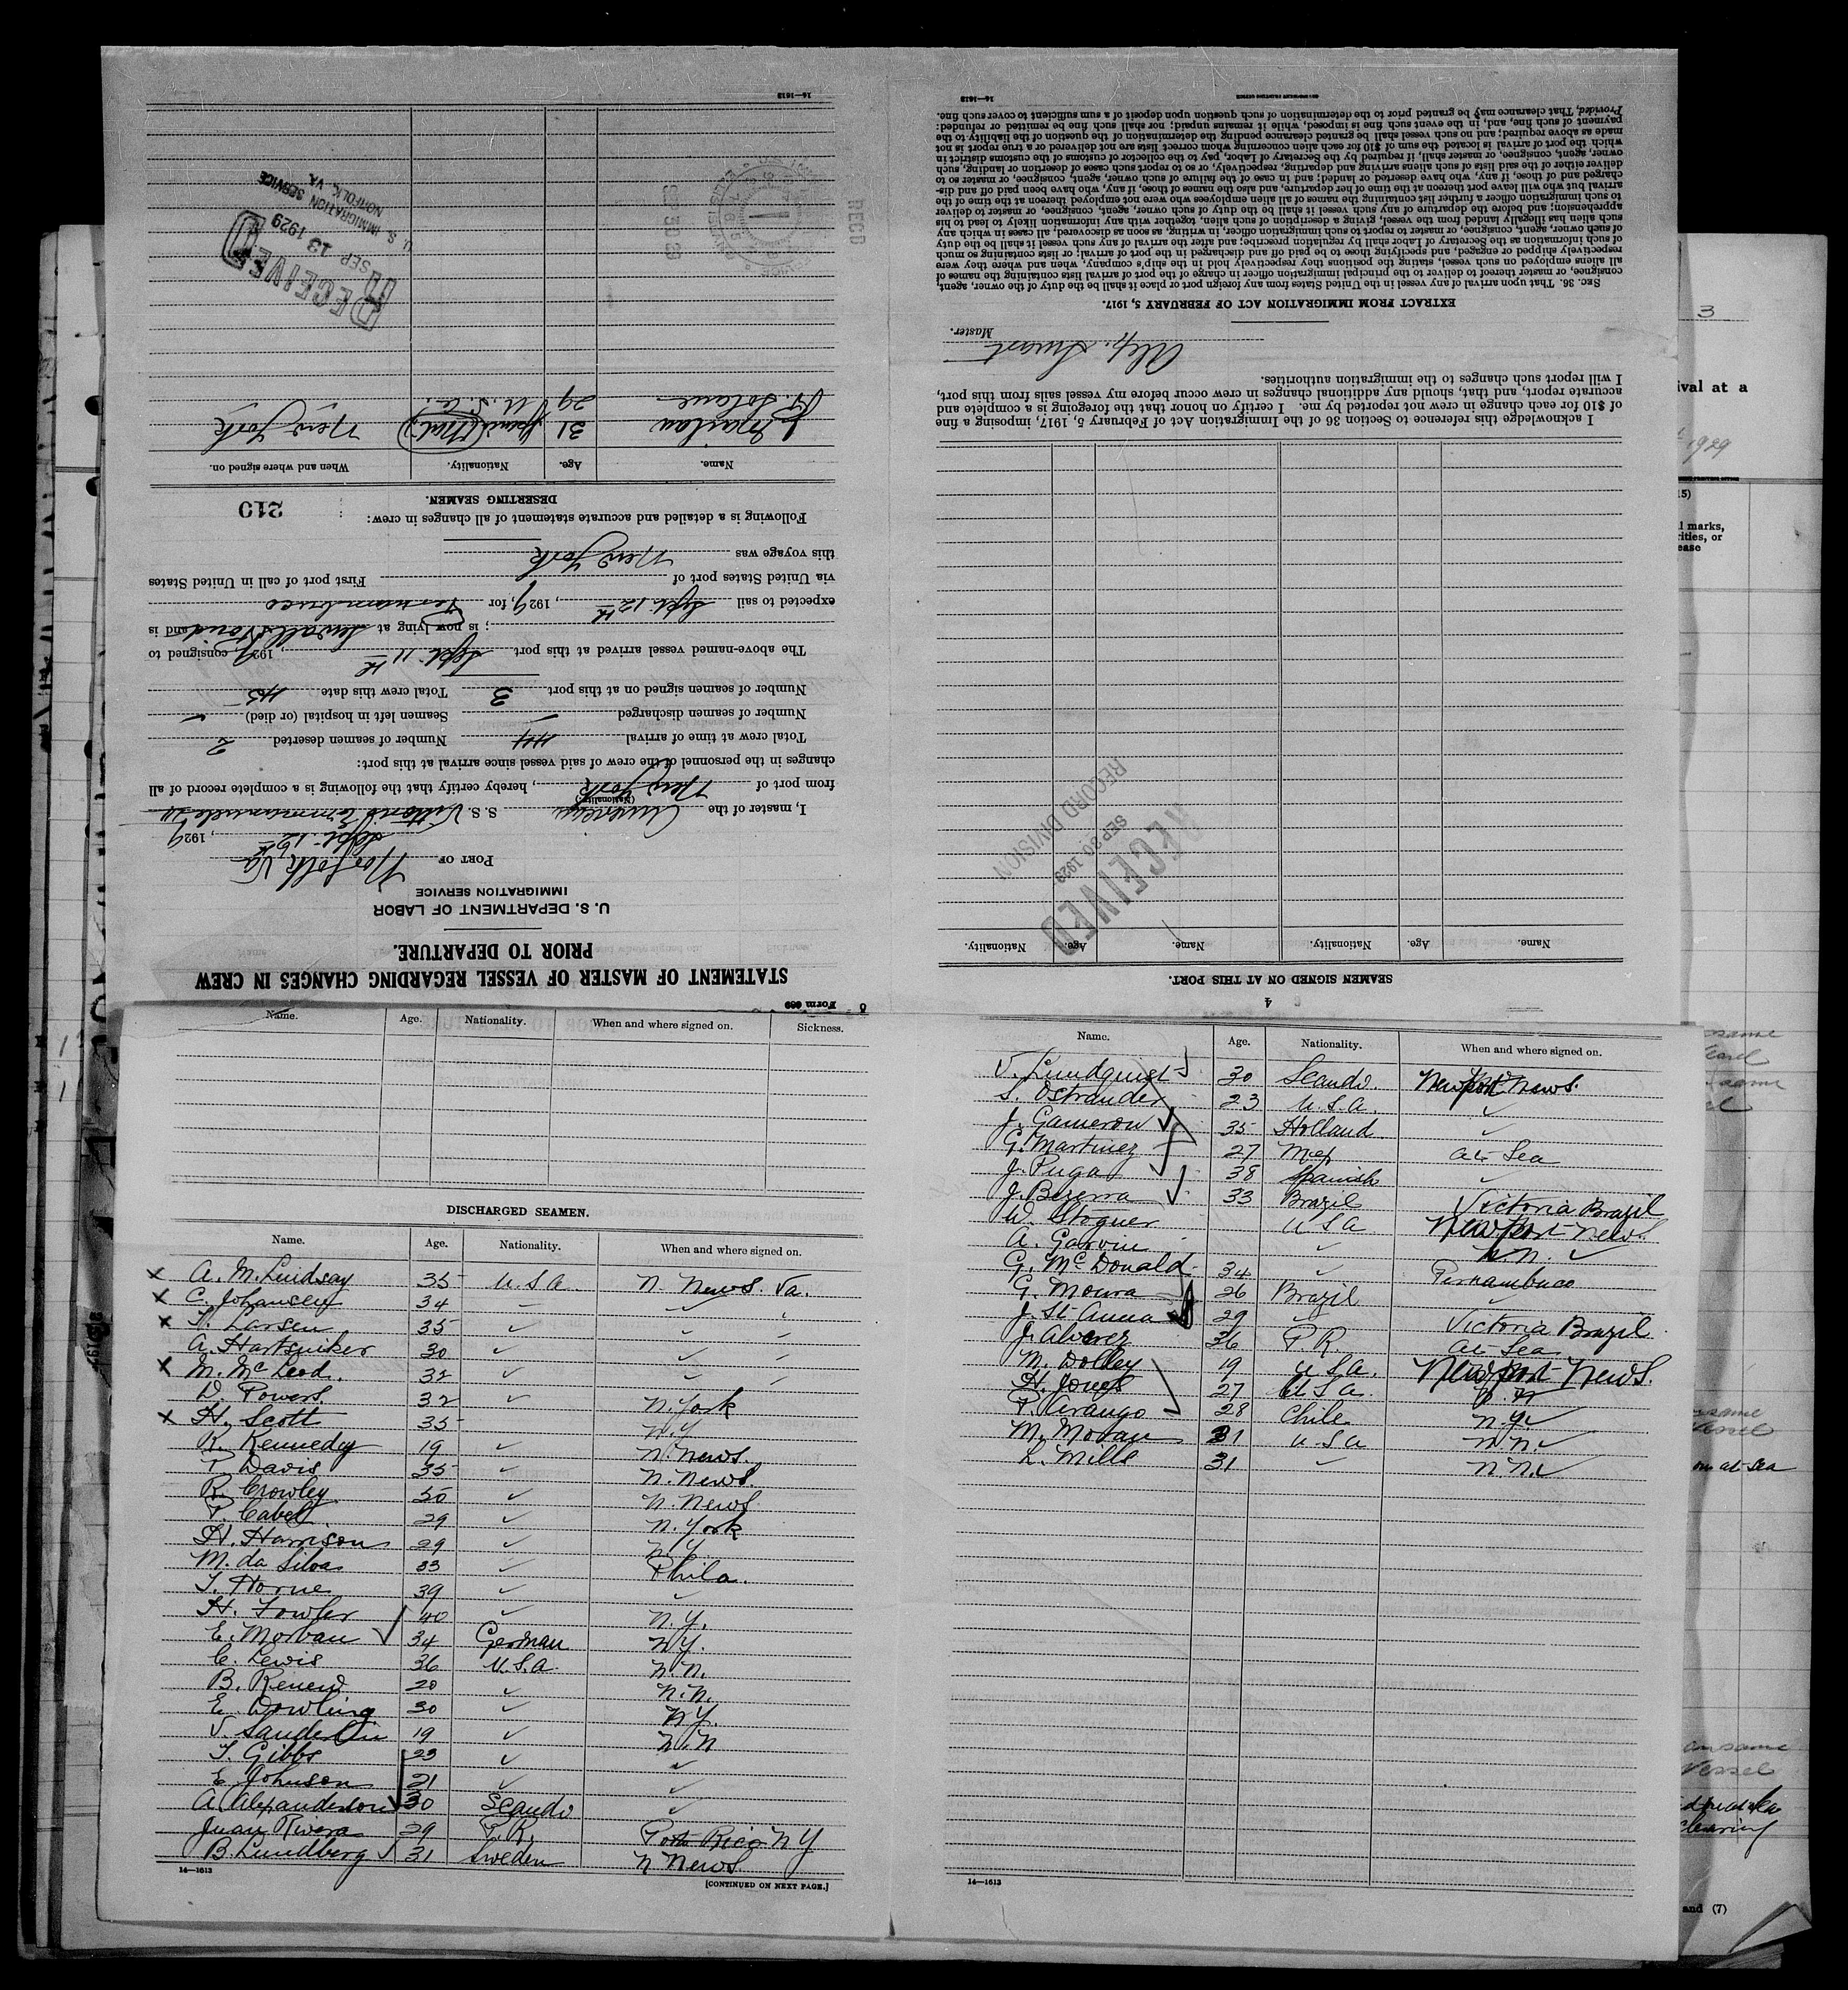 8 Form 689
STATEMENT OF MASTER OF VESSEL REGARDING CHANGES IN CREW
PRIOR TO DEPARTURE.
U. S. DEPARTMENT OF LABOR
IMMIGRATION SERVICE
PORT OF Norfolk, Va
Sept. 12th, 1929
I, master of the American S. S. Vittorio Emmanuele III
(Nationality)
from port of New York, hereby certify that the following is a complete record of all
changes in the personnel of the crew of said vessel since arrival at this port:
Total crew at time of arrival 44 Number of seamen deserted 2
Number of seamen discharged – Seamen left in hospital (or died) –
Number of seamen signed on at this port 3 Total crew this date 45
The above-named vessel arrived at this port Sept. 11th 1929, consigned to
; is now lying at Sewalls Point and is
expected to sail Sept. 12th, 1929, for Pernambuco
via United States port of First port of call in United States
this voyage was New York
Following is a detailed and accurate statement of all changes in crew:
DESERTING SEAMEN.
210
Name. Age. Nationality. When and where signed on.
31 Spain (Nat.) New York
29 U.S.C.
RECEIVED
SEP 13 1929
U. S. IMMIGRATION SERVICE
NORFOLK, VA.
RECD
SEP 30 29
14—1613
4
SEAMEN SIGNED ON AT THIS PORT.
Name. Age. Nationality. Name. Age. Nationality.
RECEIVED
SEP 30 1929
RECORD DIVISION
I acknowledge this reference to Section 36 of the Immigration Act of February 5, 1917, imposing a fine
of $10 for each change in crew not reported by me. I certify on honor that the foregoing is a complete and
accurate report, and that, should any additional changes in crew occur before my vessel sails from this port,
I will report such changes to the immigration authorities.
Master.
EXTRACT FROM IMMIGRATION ACT OF FEBRUARY 5, 1917.
SEC. 36. That upon arrival of any vessel in the United States from any foreign port or place it shall be the duty of the owner, agent,
consignee, or master thereof to deliver to the principal immigration officer in charge of the port of arrival lists containing the names of
all aliens employed on such vessel, stating the positions they respectively hold in the ship's company, when and where they were
respectively shipped or engaged, and specifying those to be paid off and discharged in the port of arrival; or lists containing so much
of such information as the Secretary of Labor shall by regulation prescribe; and after the arrival of any such vessel it shall be the duty
of such owner, agent, consignee, or master to report to such immigration officer, in writing, as soon as discovered, all cases in which any
such alien has illegally landed from the vessel, giving a description of such alien, together with any information likely to lead to his
apprehension; and before the departure of any such vessel it shall be the duty of such owner, agent, consignee, or master to deliver
to such immigration officer a further list containing the names of all alien employees who were not employed thereon at the time of the
arrival but who will leave port thereon at the time of her departure, and also the names of those, if any, who have been paid off and dis-
charged and of those, if any, who have deserted or landed; and in case of the failure of such owner, agent, consignee, or master to
deliver either of the said lists of such aliens arriving and departing, respectively, or so to report such cases of desertion or landing, such
owner, agent, consignee, or master shall, if required by the Secretary of Labor, pay to the collector of customs of the customs district in
which the port of arrival is located the sum of $10 for each alien concerning whom correct lists are not delivered or a true report is not
made as above required; and no such vessel shall be granted clearance pending the determination of the question of the liability to the
payment of such fine, and, in the event such fine is imposed, while it remains unpaid; nor shall such fine be remitted or refunded:
Provided, That clearance may be granted prior to the determination of such question upon deposit of a sum sufficient to cover such fine.
14—1613
Name. Age. Nationality. When and where signed on. Sickness.
DISCHARGED SEAMEN.
Name. Age. Nationality. When and where signed on.
x A. M. Lindsay 35 U.S.A. N. News. Va.
x C. Johansen 34 –
x T. Larsen 35 ✓
A. Hartsuiker 30 ✓
x M. McLeod. 32 ✓
D. Powers. 32 ✓ N. York
x H. Scott 35 N.Y.
R. Kennedy 19 ✓ N. News.
P. Davis 35 ✓ N. News.
R. Crowley 50 ✓ N. News
P. Cabet 29 ✓ N. York
H. Harrison 29 ✓ N.Y.
M. da Silva 33 ✓ Phila.
T. Horne 39 ✓ ✓
H. Fowler 40 ✓ N.Y.
E. Morvan ✓ 34 German N.Y.
C. Lewis 36 U.S.A. N.N.
B. Renew 20 ✓ N.N.
E. Dowling 30 ✓ N.Y.
V. Sanderlin 19 ✓ N.N
T. Gibbs 23 ✓ ✓
E. Johnson 21 ✓ ✓
A. Alexanderson 30 Scandv ✓
Juan Rivera 29 P.R. Porto Rico N Y
B. Lundberg ✓ 31 Sweden N News.
14—1613
[CONTINUED ON NEXT PAGE.]
Name. Age. Nationality. When and where signed on.
V. Lundquist 30 Scandv. Newport News.
S. Ostrander 23 U.S.A. ✓
J. Gameron 35 Holland ✓
G. Martinez 27 Mex At Sea
J. Puga 38 Spanish ✓
J. Bezerra 33 Brazil Victoria Brazil
W. Stoguer U S A Newport News.
A. Garvin ✓ N.N. ✓
G. McDonald 34 ✓ Pernambuco
G. Moura 26 Brazil ✓
J. St Anna 29 ✓ Victoria Brazil
J. Alverez 36 P R. At Sea
M. Dolley 19 U.S.A. Newport News.
H. Jones 27 U S A
P. Arango 28 Chile N.Y.
M. Moran 31 U S A N N.
L. Mills 31 ✓ N N.
14—1613
3
ival at a
1929
15)
l marks,
rities, or
ease
same
on at sea
same
Vessel
clearing
and (7)